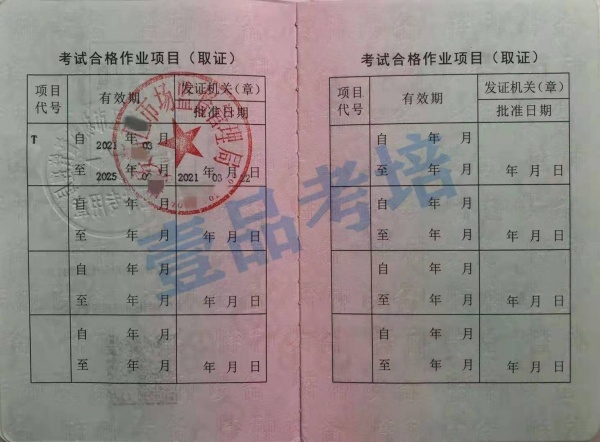 考试合格作业项目（取证）
项目代号 有效期 发证机关（章）
批准日期
T 自 2021 年 03 月
至 2025 年 月 2021 年 03 月 22 日
自 年 月
至 年 月 年 月 日
自 年 月
至 年 月 年 月 日
自 年 月
至 年 月 年 月 日
市场监督管理局
壹品考培
考试合格作业项目（取证）
项目代号 有效期 发证机关（章）
批准日期
自 年 月
至 年 月 年 月 日
自 年 月
至 年 月 年 月 日
自 年 月
至 年 月 年 月 日
自 年 月
至 年 月 年 月 日